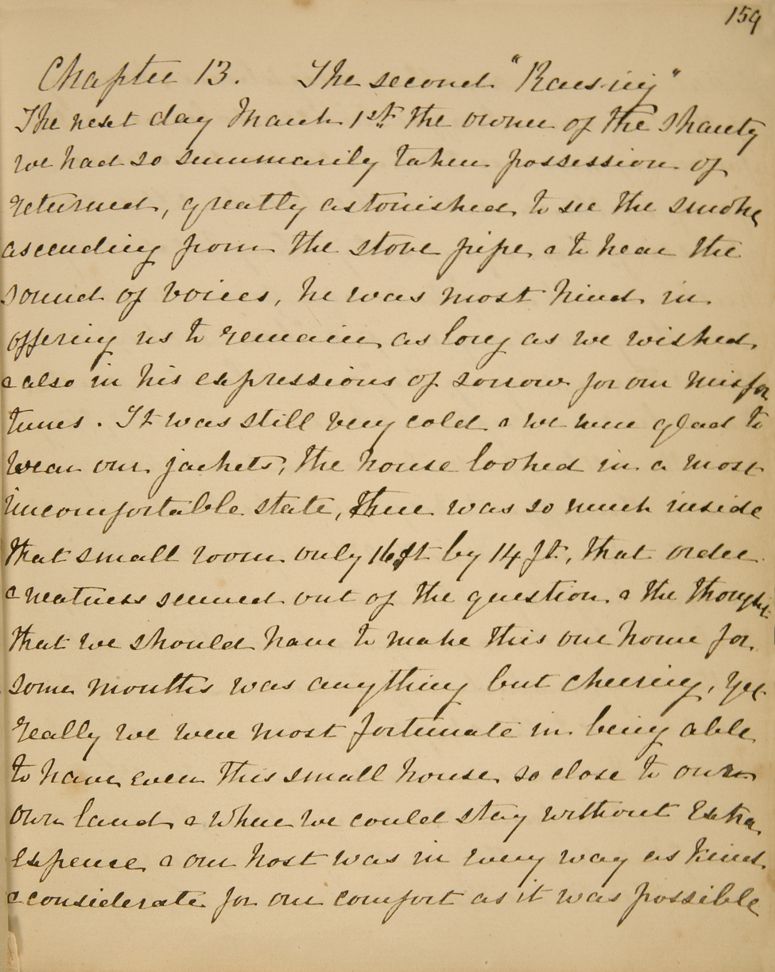 159
Chapter 13. The second "Raising"
The next day March 1st the owner of the shanty
we had so summarily taken possession of
returned, greatly astonished to see the smoke
ascending from the stove pipe & to hear the
sound of voices, he was most kind in
offering us to remain as long as we wished,
& also in his expressions of sorrow for our misfor
tunes. It was still very cold & we were glad to
wear our jackets, the house looked in a most
uncomfortable state, there was so much inside
that small room only 16ft by 14 ft, that order
& neatness seemed out of the question & the thought
that we should have to make this our home for
some months was anything but cheering, yet
really we were most fortunate in being able
to have even this small house so close to our
own land & where we could stay without extra
expence & our host was in every way as kind
& considerate for our comfort as it was possible